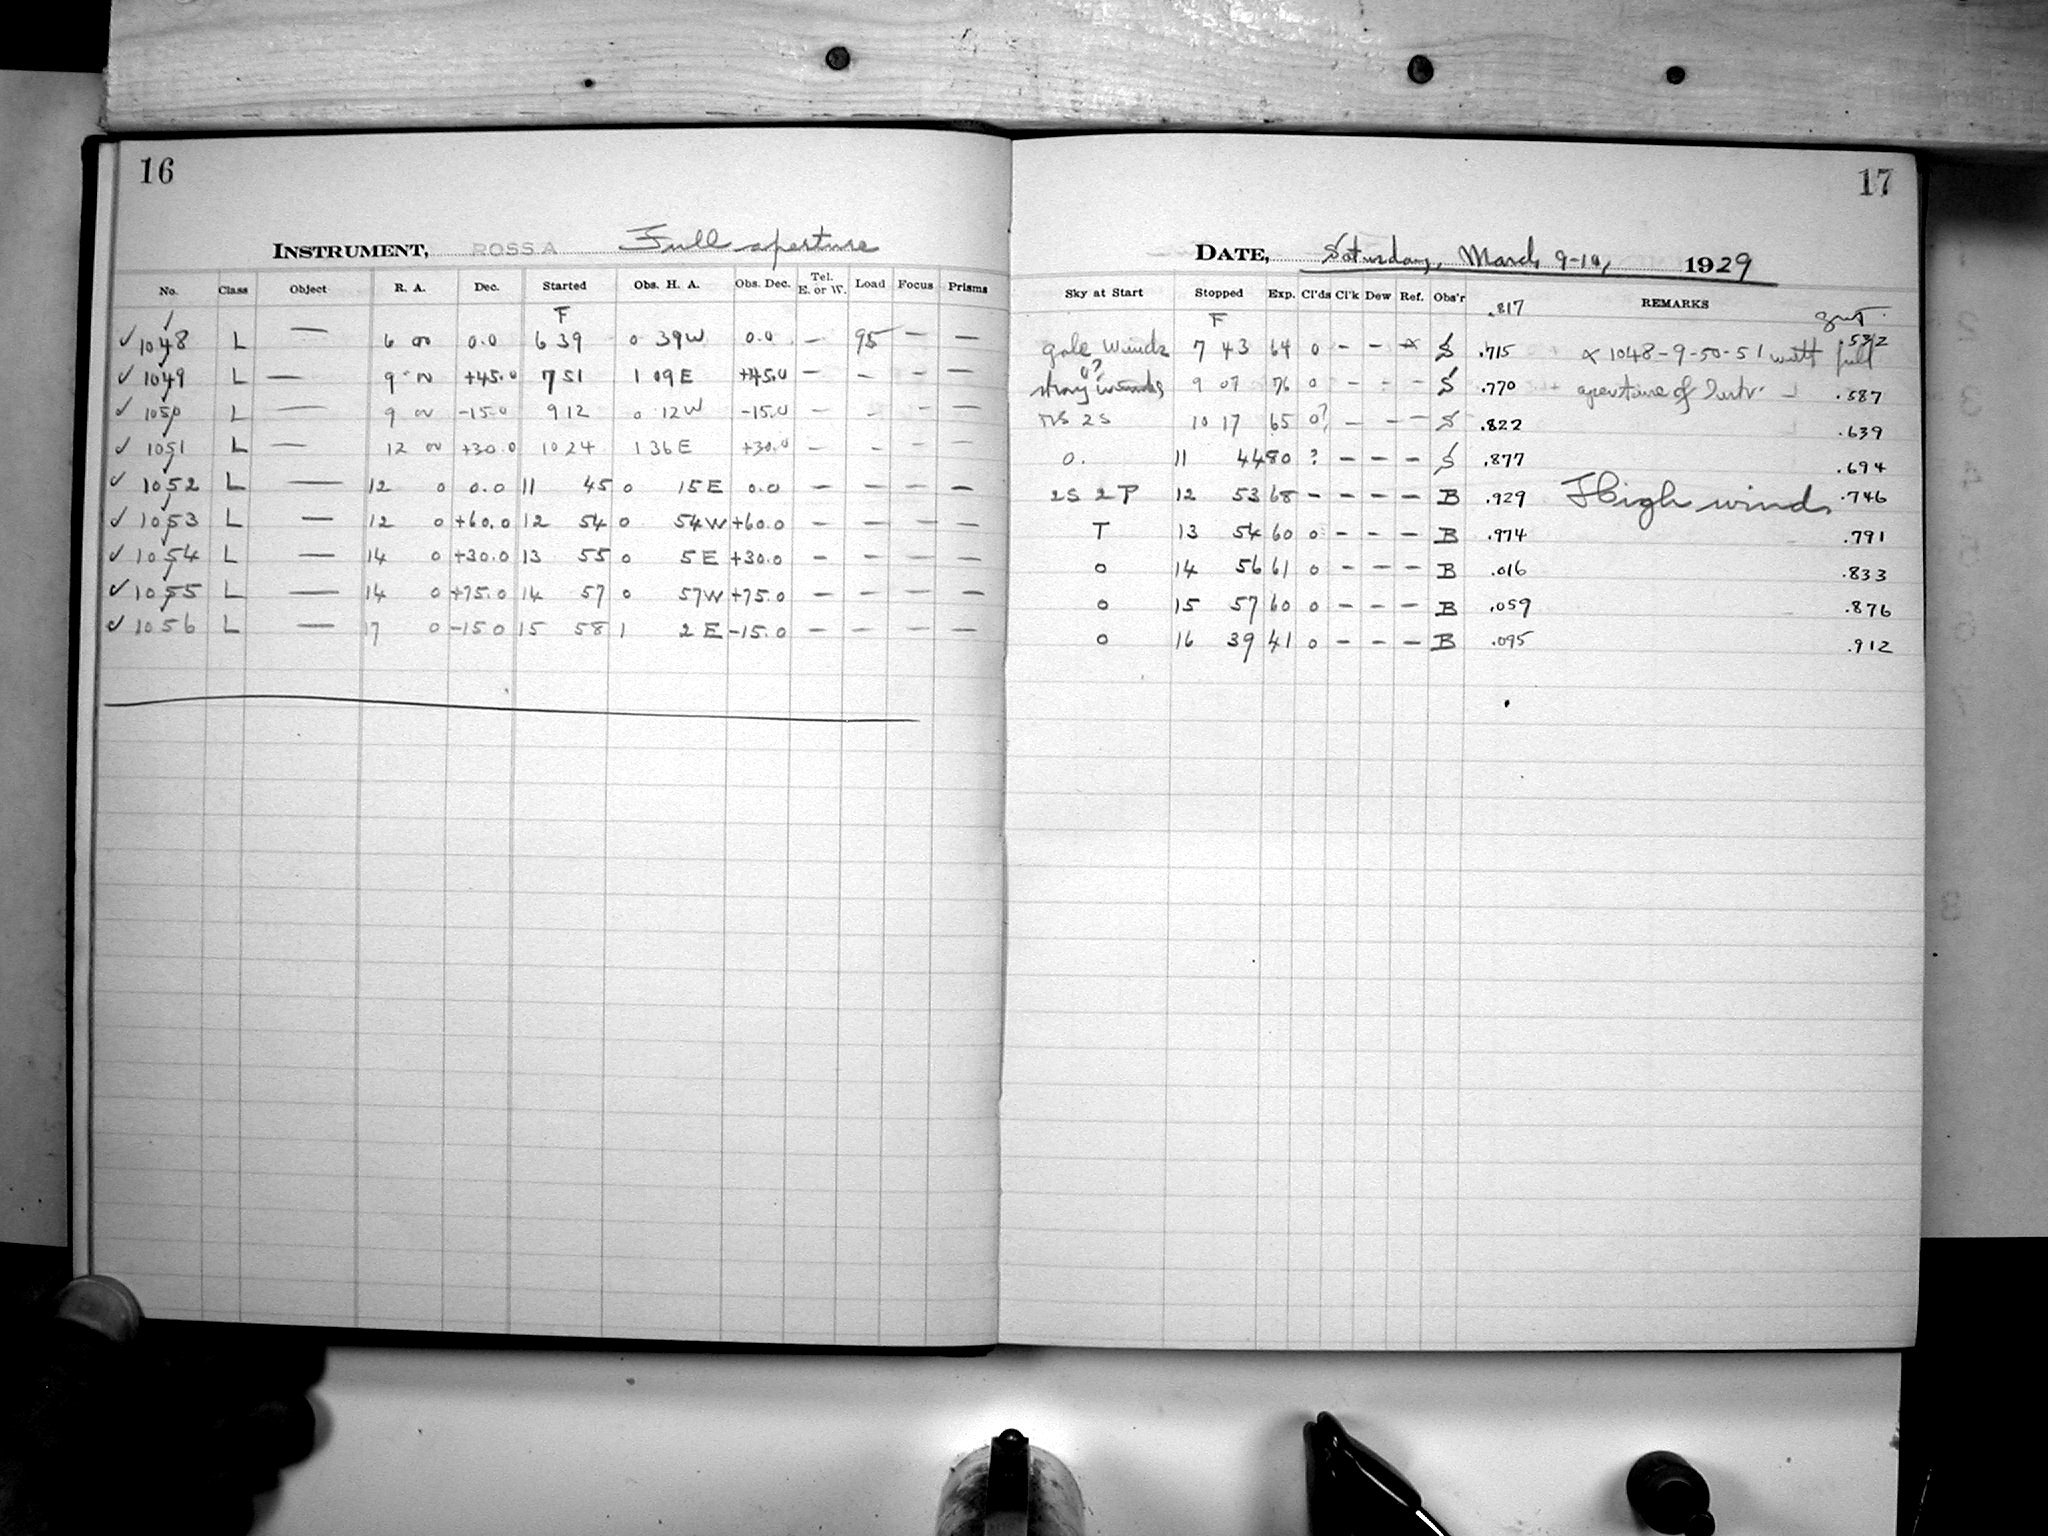 16
INSTRUMENT, ROSS A Full aperture
No. Class Object R. A. Dec. Started Obs. H. A. Obs. Dec. Tel. E. or W. Load Focus Prisms
F
✓ 1048 L — 6 00 0.0 6 39 0 39W 0.0 — 95 — —
✓ 1049 L — 9 00 +45.0 7 51 1 09E +45.0 — - — —
✓ 1050 L — 9 00 -15.0 9 12 0 12W -15.0 — - — —
✓ 1051 L — 12 00 +30.0 10 24 1 36E +30.0 — - — —
✓ 1052 L — 12 0 0.0 11 45 0 15E 0.0 — — — —
✓ 1053 L — 12 0 +60.0 12 54 0 54W +60.0 — — — —
✓ 1054 L — 14 0 +30.0 13 55 0 5E +30.0 — — — —
✓ 1055 L — 14 0 +75.0 14 57 0 57W +75.0 — — — —
✓ 1056 L — 17 0 -15.0 15 58 1 2E -15.0 — — — —
17
DATE, Saturday, March 9-10, 1929
Sky at Start Stopped Exp. Cl'ds Cl'k Dew Ref. Obs'r .817 REMARKS
F
gale winds 7 43 64 0 — — × S .715 × 1048-9-50-51 with full .532
0?
strong winds 9 07 76 0 — - — S .770 aperture of Instr. .587
2S 10 17 65 0? — — — S .822 .639
0. 11 44 80 ? — — — S .877 .694
2S 2P 12 53 68 — — — — B .929 High wind. .746
T 13 54 60 0 — — — B .974 .791
0 14 56 61 0 — — — B .016 .833
0 15 57 60 0 — — — B .059 .876
0 16 39 41 0 — — — B .095 .912